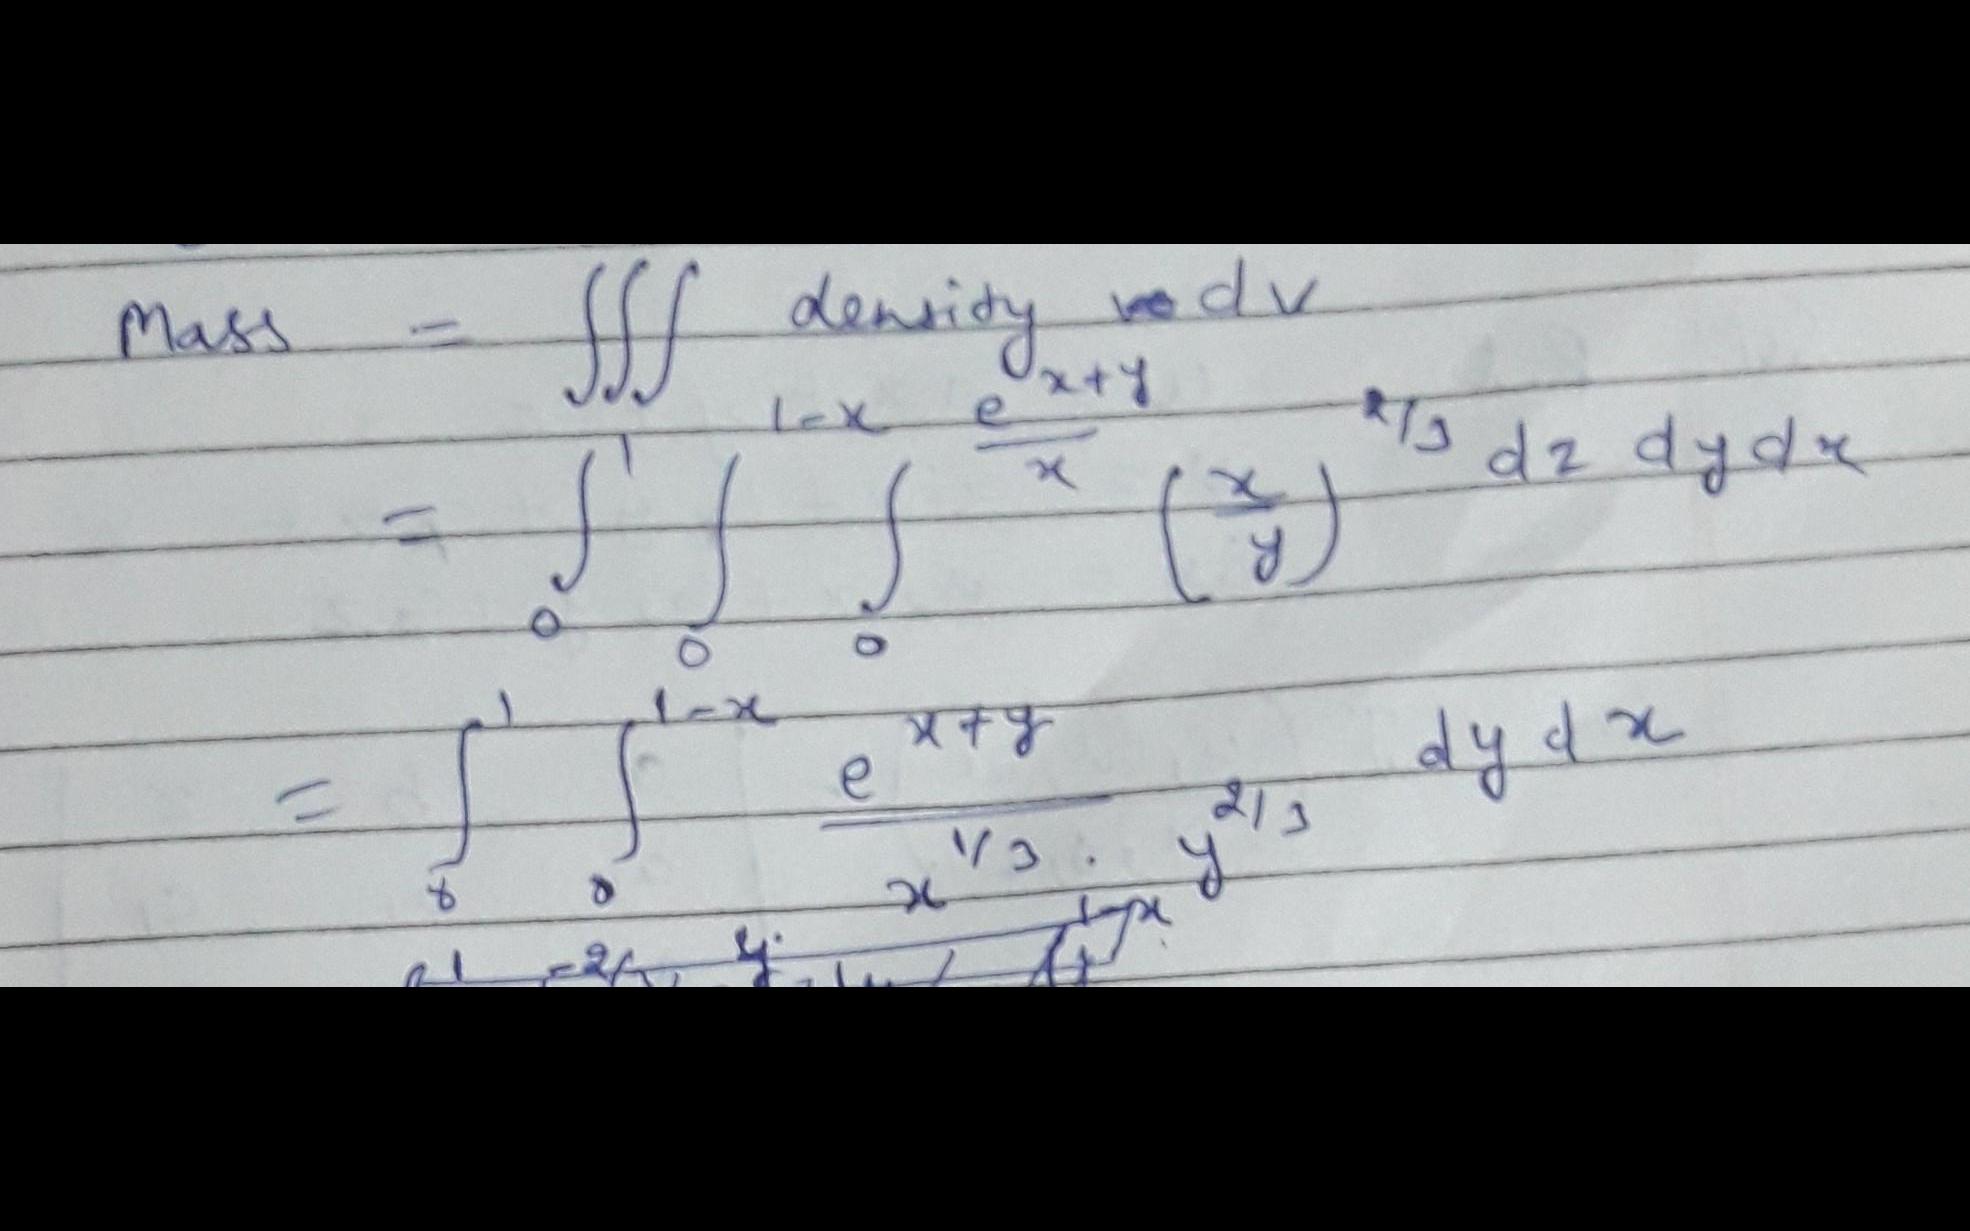 Mass = ∫∫∫ density dv
= ∫₀¹ ∫₀^(1-x) ∫₀^(e^(x+y)/x) (x/y)^(2/3) dz dy dx
= ∫₀¹ ∫₀^(1-x) e^(x+y)/(x^(1/3) · y^(2/3)) dy dx